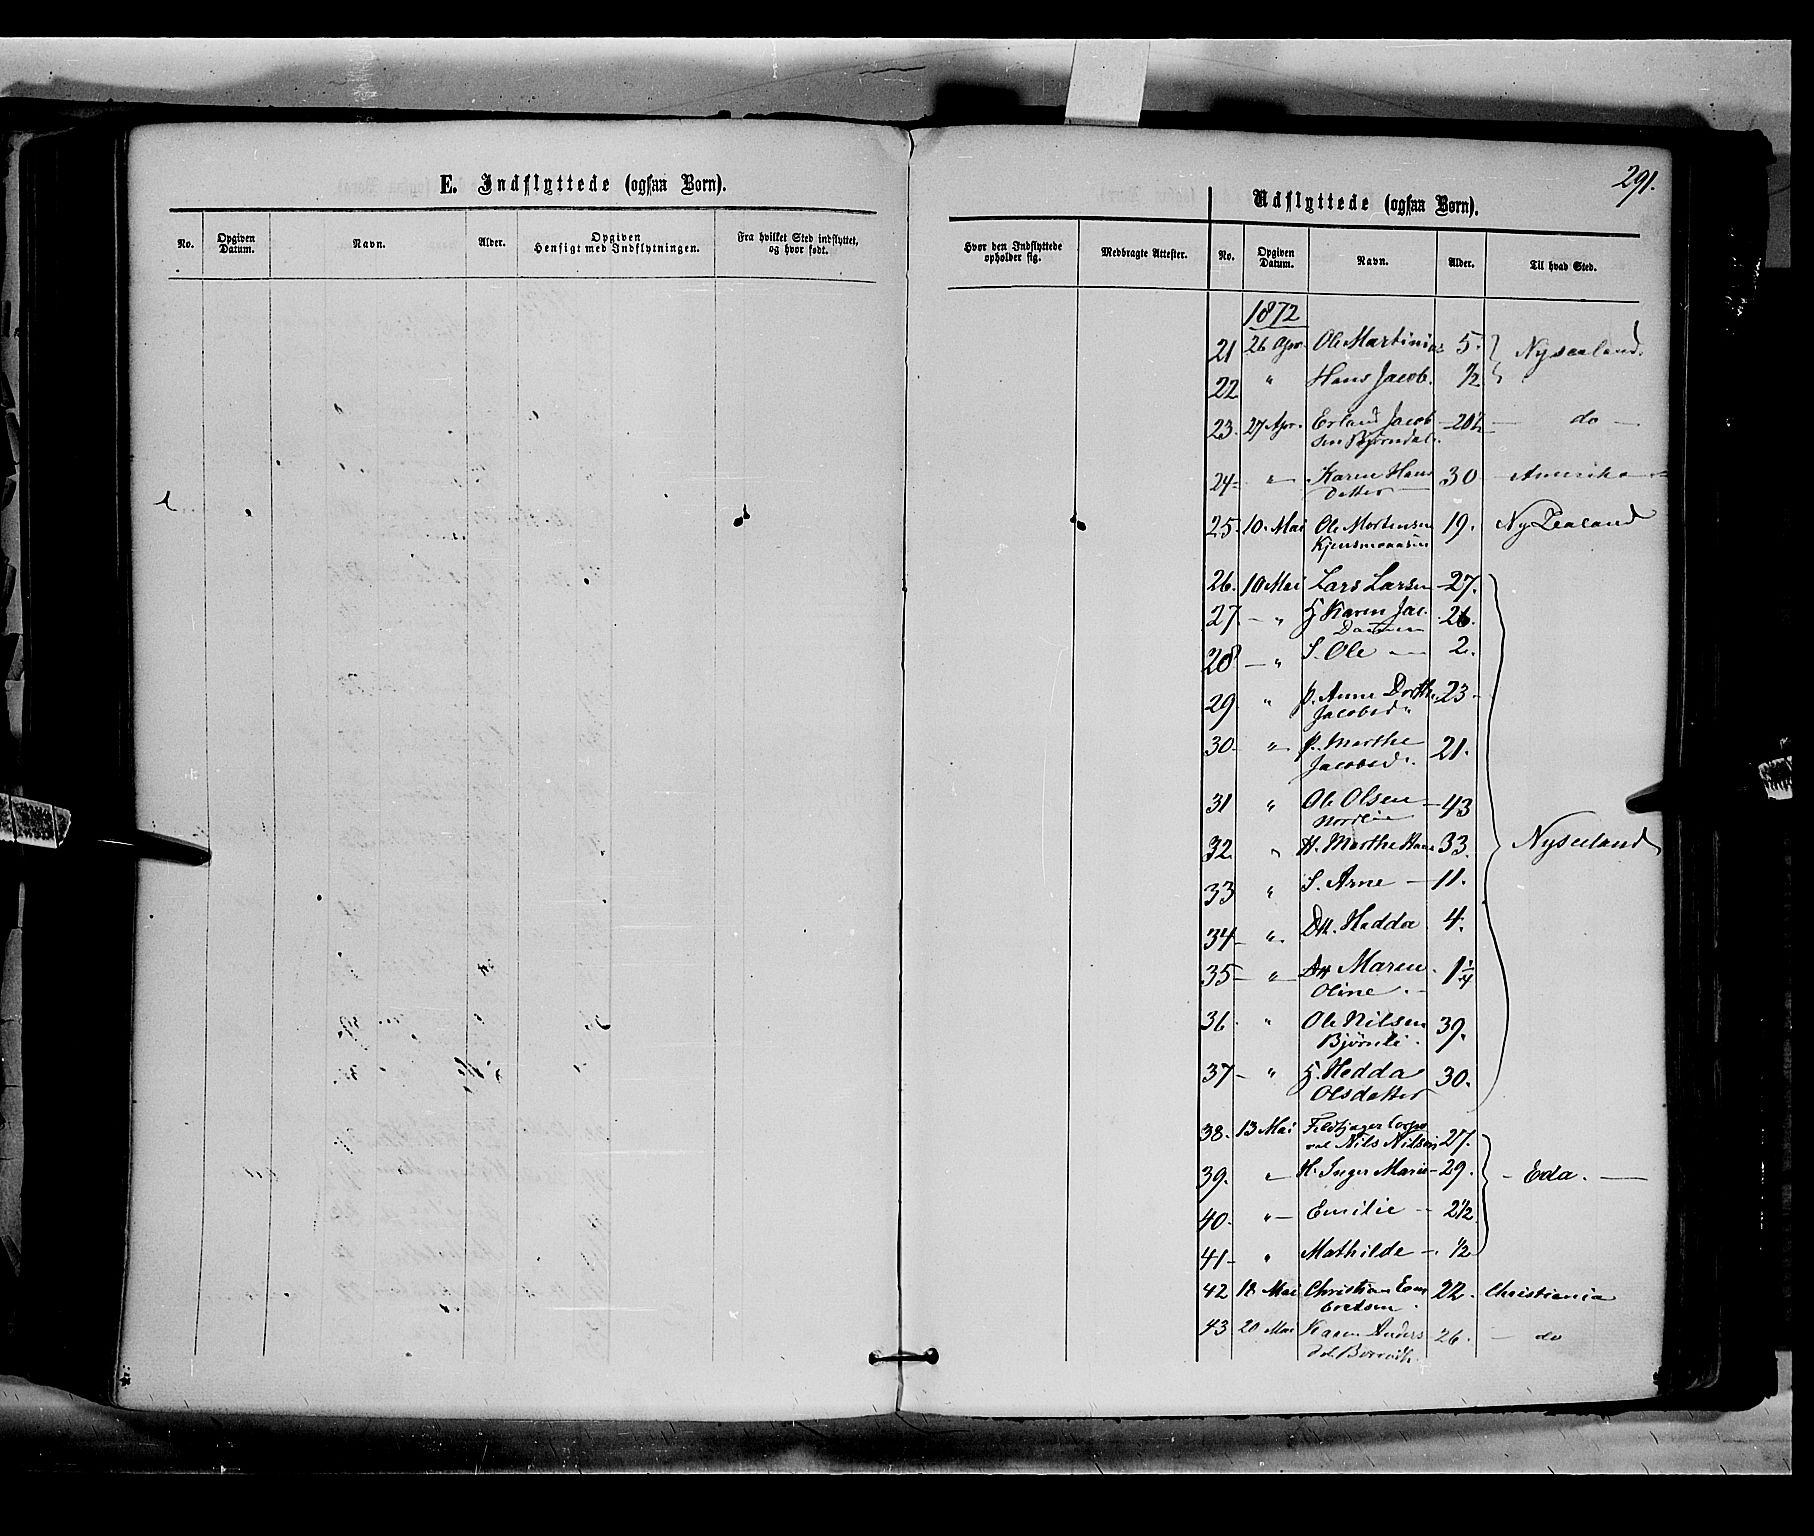 291.
E. Indflyttede (ogsaa Børn).
No. Opgiven Datum. Navn. Alder. Opgiven Hensigt med Indflytningen. Fra hvilket Sted indflyttet, og hvor født.
Udflyttede (ogsaa Børn).
Hvor den Indflyttede opholder sig. Medbragte Attester. No. Opgiven Datum. Navn. Alder. Til hvad Sted.
1872
21 26 Apr. Ole Martinius 5. Nysealand.
22 " Hans Jacob. 1/2
23. 27 Apr. Erland Jacob 20 1/2 do
sen Bjørndal.
24 " Karen Hans 30 Amerika
Datter
25. 10. Mai Ole Mortensen 19. Ny Zealand
26. 10 Mai Lars Larsen 27.
27. " H Karen Jac. 26.
28 " S. Ole 2.
29 " p. Anne Dorthe 23
Jacobsd.
30 " p. Marthe 21.
Jacobsd.
31 " Ole Olsen 43
Nordlie
32. " H. Marthe Hans 33. Nyseeland
33 " S. Arne 11.
34 " Dtr. Hedda 4.
35 " Dtr Maren 1 1/4
Oline
36 " Ole Nilsen 39.
Bjørnli
37 " H. Hedda 30.
Olsdatter
38. 13 Mai Feldtjager Corpo
ral Nils Nilsen 27.
39. " H. Inger Marie 29. Eda.
40. " Emilie 2 1/2
41 " Mathilde 1/2
42 18 Mai Christian Em 22. Christiania
bretsen
43 20 Mai Karen Anders 26. do